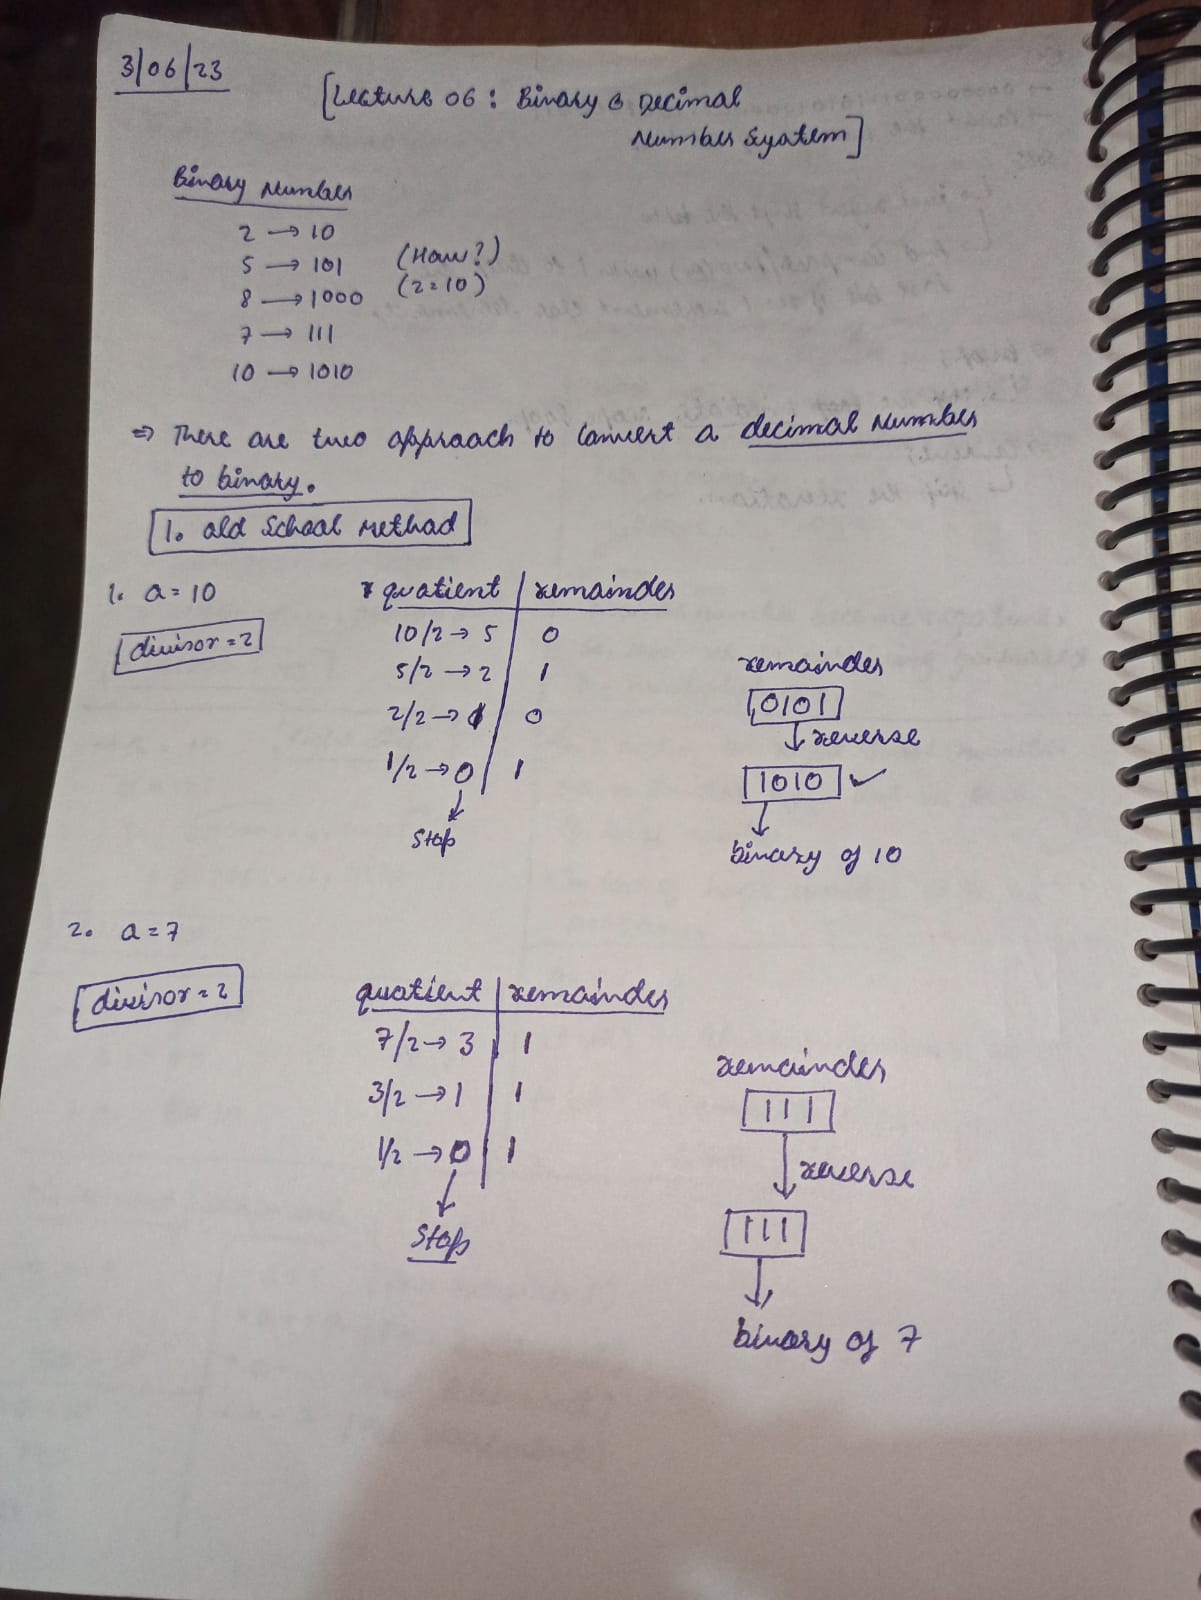 3/06/23
[Lecture 06: Binary & Decimal
Number System]
Binary Number
2 → 10
5 → 101 (How?)
8 → 1000 (2=10)
7 → 111
10 → 1010
⇒ There are two approach to convert a decimal Number
to binary.
1. old School Method
1. a = 10
quotient | remainder
divisor = 2
10/2 → 5 | 0
5/2 → 2 | 1
remainder
2/2 → 1 | 0
0101
↓ reverse
1/2 → 0 | 1
1010 ✓
↓
Stop
binary of 10
2. a = 7
divisor = 2
quotient | remainder
7/2 → 3 | 1
remainder
3/2 → 1 | 1
111
1/2 → 0 | 1
↓ reverse
Stop
111
↓
binary of 7